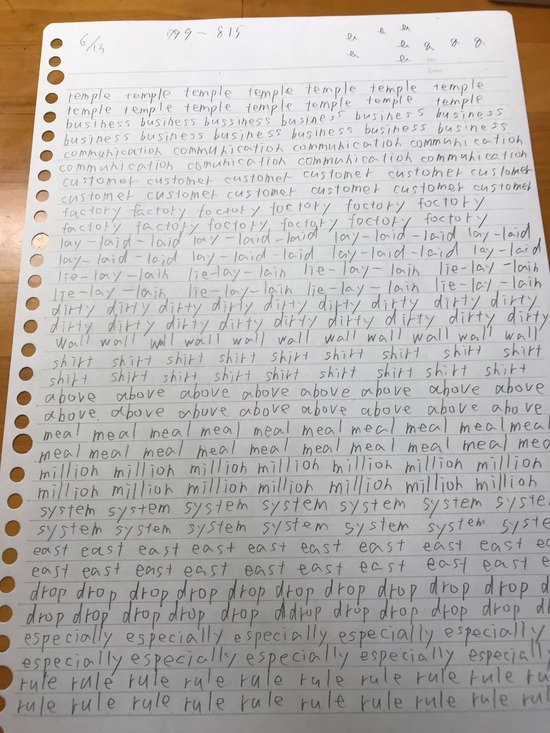 6/13 799-815
temple temple temple temple temple temple temple
temple temple temple temple temple temple temple
business business bussiness business business business
business business business business business business
communication communication communication communication
communication comunication communication communication
customer customer customer customer customer customer
customer customer customer customer customer customer
factory factory foctory foctory foctory foctory
factory factory foctory foctory foctory foctory
lay-laid-laid lay-laid-laid lay-laid-laid lay-laid
lay-laid-laid lay-laid-laid lay-laid-laid lay-laid
lie-lay-lain lie-lay-lain lie-lay-lain lie-lay-lain
lie-lay-lain lie-lay-lain lie-lay-lain lie-lay-lain
dirty dirty dirty dirty dirty dirty dirty dirty dirty
dirty dirty dirty dirty dirty dirty dirty dirty dirty
wall wall wall wall wall wall wall wall wall wall wall
shirt shirt shirt shirt shirt shirt shirt shirt shirt
shirt shirt shirt shirt shirt shirt shirt shirt shirt
above above above above above above above above above
above above above above above above above above above
meal meal meal meal meal meal meal meal meal meal
meal meal meal meal meal meal meal meal meal mea
million million million million million million million
million million million million million million million
system system system system system system system syste
system system system system system system system syste
east east east east east east east east east ea
east east east east east east east east east e
drop drop drop drop drop drop drop drop drop drop d
drop drop drop drop drop ddrop drop drop drop drop dr
especially especially especially especially especially
especially especially especially especially especiall
rule rule rule rule rule rule rule rule rule ru
rule rule rule rule rule rule rule rule rule ru